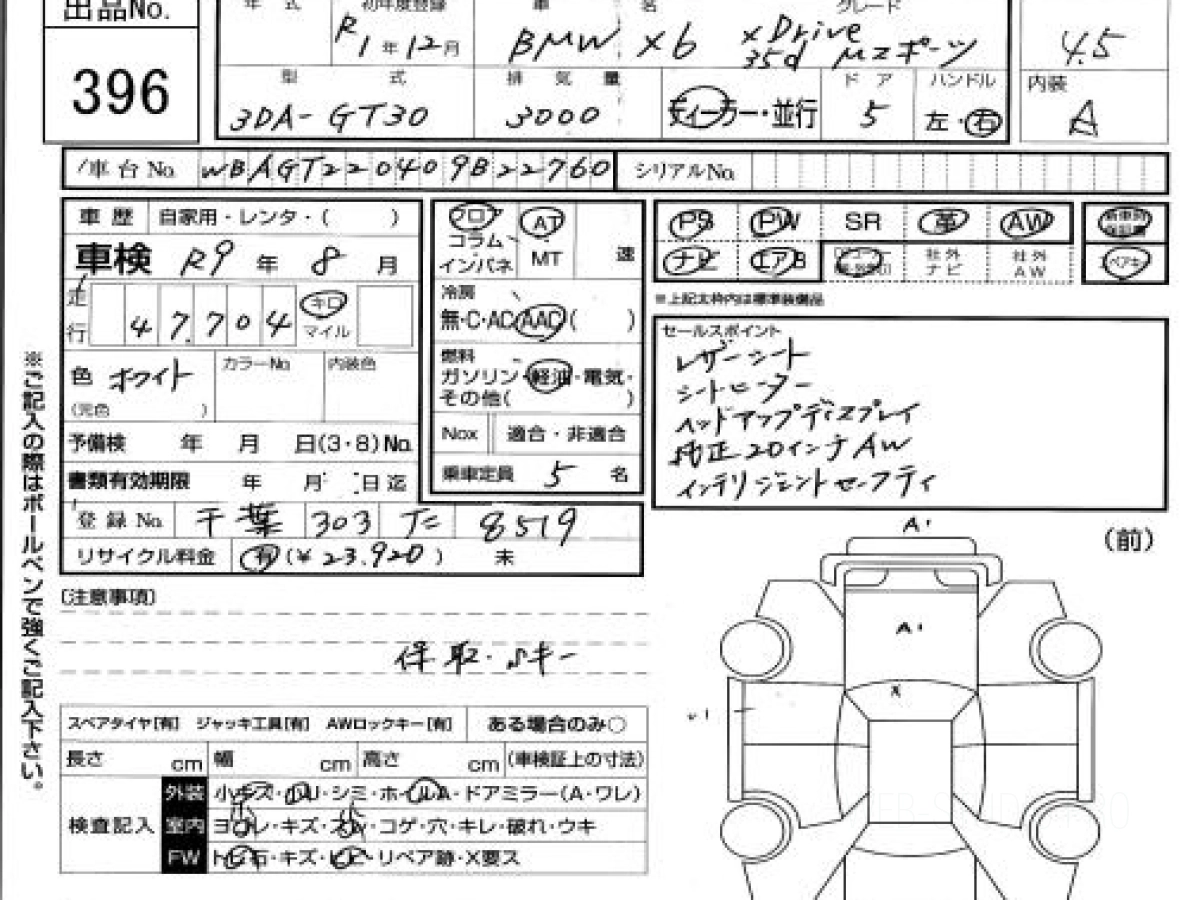 出品No. 396
年式 初年度登録 車名 グレード
R1年12月 BMW X6 xDrive 35d Mスポーツ 4.5
型式 排気量 ドア ハンドル 内装
3DA-GT30 3000 ディーラー・並行 5 左・右 A
車台No. WBAGT220409B22760 シリアルNo.
車歴 自家用・レンタ・( )
車検 R9年 8月
走行 47,704 キロ マイル
色 ホワイト カラーNo. 内装色
(元色 )
予備検 年 月 日(3・8)No.
書類有効期限 年 月 日迄
登録No. 千葉 303 8519
リサイクル料金 有(¥23,920) 未
フロア
コラム
インパネ
AT
MT
速
冷房
無・C・AC・AAC( )
燃料
ガソリン・軽油・電気・
その他( )
Nox 適合・非適合
乗車定員 5 名
PS PW SR 革 AW
ナビ エアB 社外ナビ 社外AW
※上記太枠内は標準装備品
セールスポイント
レザーシート
シートヒーター
ヘッドアップディスプレイ
純正20インチAW
インテリジェントセーフティ
※ご記入の際はボールペンで強くご記入下さい。
〔注意事項〕
保取・Sキー
スペアタイヤ[有] ジャッキ工具[有] AWロックキー[有] ある場合のみ○
長さ cm 幅 cm 高さ cm (車検証上の寸法)
検査記入
外装 小キズ・凹・シミ・ホイルA・ドアミラー(A・ワレ)
室内 ヨゴレ・キズ・スレ・コゲ・穴・キレ・破れ・ウキ
FW トビ石・キズ・ヒビ・リペア跡・X要ス
A1
(前)
A1
X